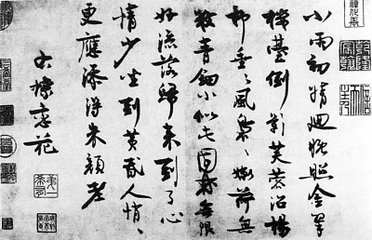 小雨初晴迴晚照金翠
樓臺倒影芙蓉沼楊
柳垂々風裊々嫩荷無
數青鈿小似此園林無限
好流落歸來到了心
情少坐到黃昏人悄々
更應添得朱顏老
右蝶戀花